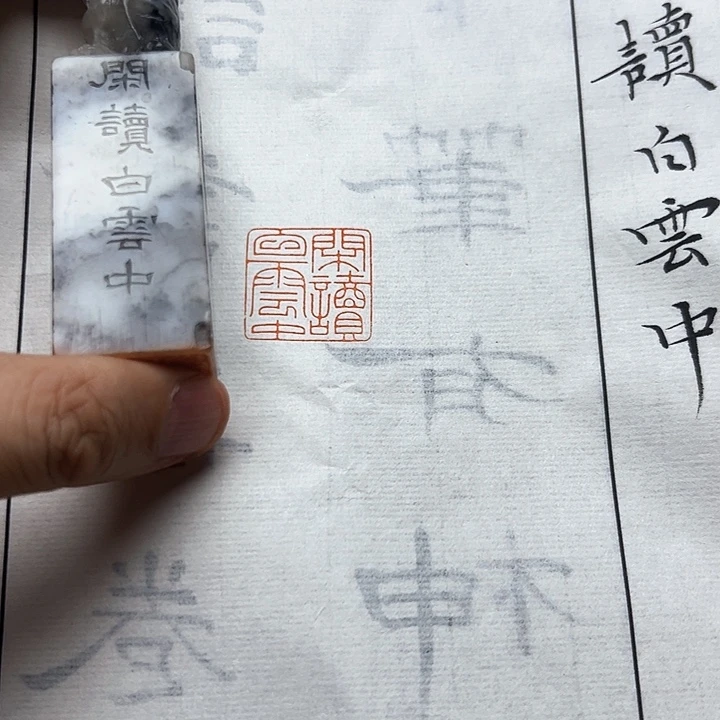 讀白雲中
筆有神
閑讀
白雲中
卷
閑讀白雲中